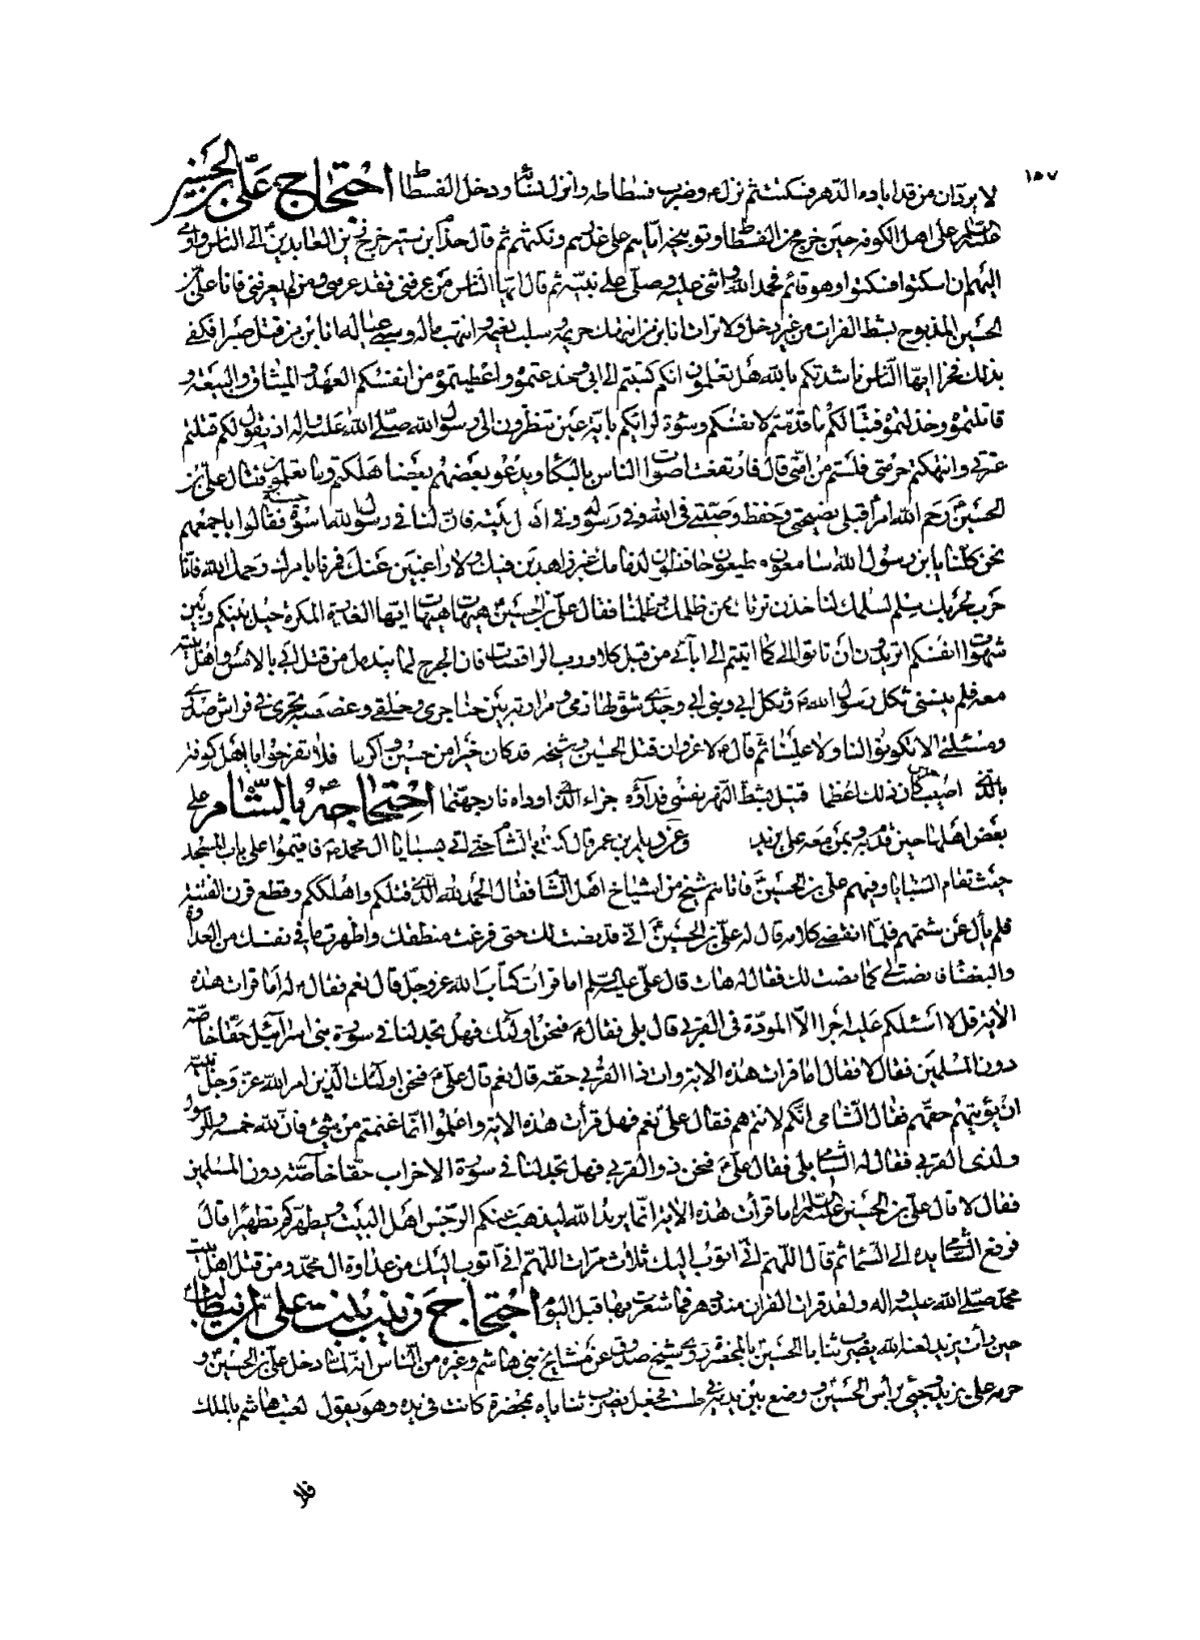 ١٥٧
لا بردان من قد اباده الدهر فسكتت ثم نزل ع وضرب فسطاطه وانزل نسائه ودخل الفسطاط احتجاج علي بن الحسين
عليه السلام على اهل الكوفة حين خرج من الفسطاط وتوبيخه اياهم على غدرهم ونكثهم ثم قال حذام ابن ستير خرج زين العابدين ع الى الناس واومى
اليهم ان اسكتوا فسكتوا وهو قائم فحمد الله واثنى عليه وصلى على نبيه ثم قال ايها الناس من عرفني فقد عرفني ومن لم يعرفني فانا علي بن
الحسين المذبوح بشط الفرات من غير دخل ولا ترات انا ابن من انتهك حريمه وسلب نعيمه وانتهب ماله وسبي عياله انا ابن من قتل صبرا فكفى
بذلك فخرا ايها الناس ناشدتكم بالله هل تعلمون انكم كتبتم الى ابي وخدعتموه واعطيتموه من انفسكم العهد والميثاق والبيعة و
قاتلتموه وخذلتموه فتبا لكم ما قدمتم لانفسكم وسوءة لرايكم باية عين تنظرون الى رسول الله صلى الله عليه واله اذ يقول لكم قتلتم
عترتي وانتهكتم حرمتي فلستم من امتي قال فارتفعت اصوات الناس بالبكاء ويدعو بعضهم بعضا هلكتم وما تعلمون فقال علي بن
الحسين ع رحم الله امرأ قبل نصيحتي وحفظ وصيتي في الله وفي رسوله وفي اهل بيته فان لنا في رسول الله اسوة حسنة فقالوا باجمعهم
نحن كلنا يابن رسول الله سامعون مطيعون حافظون لذمامك غير زاهدين فيك ولا راغبين عنك فمرنا بامرك رحمك الله فانا
حرب لحربك سلم لسلمك لناخذن ترتك ممن ظلمك وظلمنا فقال علي بن الحسين ع هيهات هيهات ايها الغدرة المكرة حيل بينكم وبين
شهوات انفسكم اتريدون ان تاتوا الي كما اتيتم الى ابائي من قبل كلا ورب الراقصات فان الجرح لما يندمل من قتل ابي بالامس واهل بيته
معه فلم ينسني ثكل رسول الله ص وثكل ابي وبني ابي وجدي شق لهازمي ومرارته بين حناجري وحلقي وغصصه تجري في فراش صدري
ومسئلتي الا تكونوا لنا ولا علينا ثم قال ع لا غرو ان قتل الحسين وشيخه قد كان خيرا من حسين واكرما فلا تفرحوا يا اهل كوفة
بالذي اصيب حسين كان ذلك اعظما قتيل بشط النهر نفسي فداؤه جزاء الذي ارداه نار جهنما احتجاجه ع بالشام على
بعض اهلها حين قدم به وبمن معه على يزيد وعن ديلم بن عمر قال كنت بالشام حتى اتي بسبايا ال محمد ص فاقيموا على باب المسجد
حيث تقام السبايا وفيهم علي بن الحسين ع فاتاهم شيخ من اشياخ اهل الشام فقال الحمد لله الذي قتلكم واهلككم وقطع قرن الفتنة
فلم يأل عن شتمهم فلما انقضى كلامه قال له علي بن الحسين ع اني قد نصت لك حتى فرغت من منطقك واظهرت ما في نفسك من العداوة
والبغضاء فانصت لي كما نصت لك فقال له هات قال علي عليه السلم اما قرات كتاب الله عز وجل قال نعم فقال ع له اما قرات هذه
الاية قل لا اسئلكم عليه اجرا الا المودة في القربى قال بلى فقال ع فنحن اولئك فهل تجد لنا في سورة بني اسرائيل حقا خاصة
دون المسلمين فقال لا فقال اما قرات هذه الاية وات ذا القربى حقه قال نعم قال علي ع فنحن اولئك الذين امر الله عز وجل نبيه
ان يؤتيهم حقهم فقال الشامي انكم لانتم هم فقال علي نعم فهل قرأت هذه الاية واعلموا انما غنمتم من شيء فان لله خمسه وللرسول
ولذي القربى فقال له الشامي بلى فقال علي ع فنحن ذو القربى فهل تجد لنا في سورة الاحزاب حقا خاصة دون المسلمين
فقال لا قال علي بن الحسين عليه السلم اما قرأت هذه الاية انما يريد الله ليذهب عنكم الرجس اهل البيت ويطهركم تطهيرا قال
فرفع الشامي يده الى السماء ثم قال اللهم اني اتوب اليك ثلاث مرات اللهم اني اتوب اليك من عداوة ال محمد ومن قتل اهل بيت
محمد صلى الله عليه واله ولقد قرات القران منذ دهر فما شعرت بها قبل اليوم احتجاج زينب بنت علي بن ابيطالب
حين رأت يزيد لعنه الله يضرب ثنايا الحسين بالمخصرة روى شيخ صدوق عن مشايخ بني هاشم وغيره من الناس انه لما دخل علي بن الحسين و
حرمه على يزيد وجيء برأس الحسين ووضع بين يديه في طست فجعل يضرب ثناياه بمخصرة كانت في يده وهو يقول لعبت هاشم بالملك
فلا